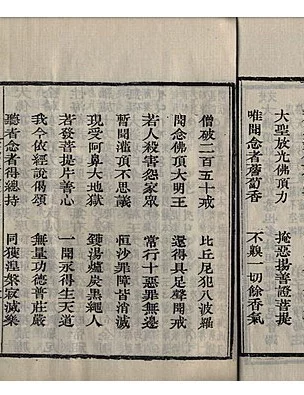 大聖放光佛頂力　掩惡揚善證菩提
唯聞念者薝蔔香　不嗅一切餘香氣
僧破二百五十戒　比丘尼犯八波羅
聞念佛頂大明王　還得具足聲聞戒
若人殺害怨家眾　常行十惡罪無邊
暫聞灌頂不思議　恒沙罪障皆消滅
現受阿鼻大地獄　鑊湯爐炭黑繩人
若發菩提片善心　一聞永得生天道
我今依經說偈頌　無量功德普莊嚴
聽者念者得總持　同獲涅槃寂滅樂